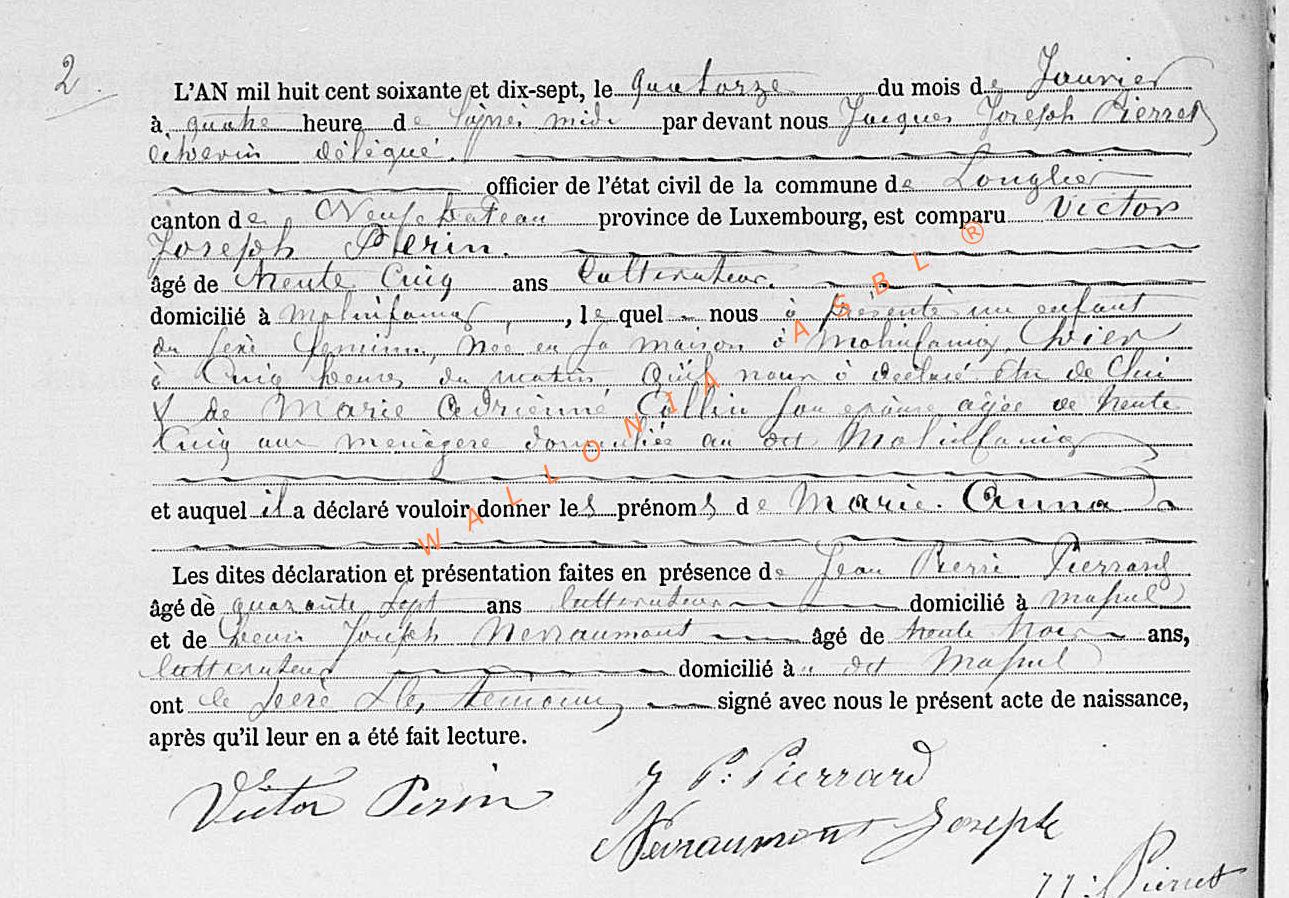 2
L'AN mil huit cent soixante et dix-sept, le quatorze du mois de Janvier
à quatre heure de l'après midi par devant nous Jacques Joseph Pierret
échevin délégué.
officier de l'état civil de la commune de Longlier
canton de Neufchateau province de Luxembourg, est comparu Victor
Joseph Perin.
âgé de trente Cinq ans Cultivateur.
domicilié à Molinfaing, le quel nous à présenté un enfant
du sexe feminin, née en sa maison à Molinfaing, hier
à Cinq heures du matin, qu'il nous à déclaré être de lui
& de Marie Adrienne Collin son épouse agée de trente
Cinq ans menagere domiciliée au dit Molinfaing
et auquel il a déclaré vouloir donner les prénoms de Marie. Anna
Les dites déclaration et présentation faites en présence de Jean Pierre Pierrard
âgé de quarante sept ans Cultivateur domicilié à Massul
et de Joseph Nevraumont âgé de trente trois ans,
Cultivateur domicilié à dit Massul
ont le père & les temoins signé avec nous le présent acte de naissance,
après qu'il leur en a été fait lecture.
Victor Perin J P: Pierrard
Nevraumont Joseph
JJ: Pierret
WALLONIA ASBL ®